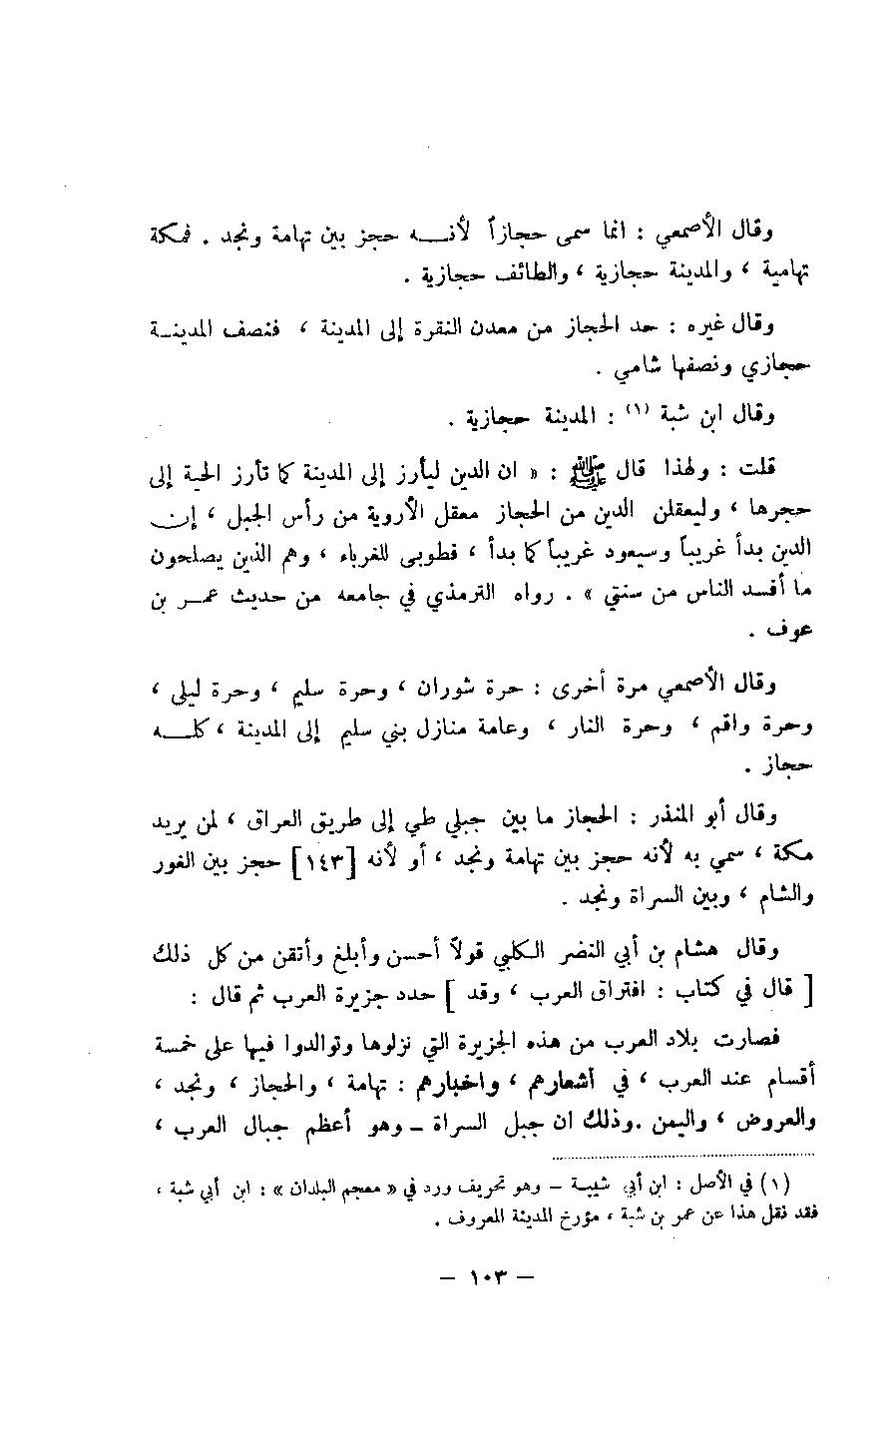 وقال الأصمعي : انما سمى حجازاً لأنـــه حجز بين تهامة ونجد . فمكة
تهامية ، والمدينة حجازية ، والطائف حجازية .
وقال غيره : حد الحجاز من معدن النقرة إلى المدينة ، فنصف المدينـة
حجازي ونصفها شامي .
وقال ابن شبة (١) : المدينة حجازية .
قلت : ولهذا قال ﷺ : « ان الدين ليأرز إلى المدينة كما تأرز الحية إلى
حجرها ، وليعقلن الدين من الحجاز معقل الأروية من رأس الجبل ، إن
الدين بدأ غريباً وسيعود غريباً كما بدأ ، فطوبى للغرباء ، وهم الذين يصلحون
ما أفسد الناس من سنتي » . رواه الترمذي في جامعه من حديث عمـر بن
عوف .
وقال الأصمعي مرة أخرى : حرة شوران ، وحرة سليم ، وحرة ليلى ،
وحرة واقم ، وحرة النار ، وعامة منازل بني سليم إلى المدينة ، كلـــه
حجاز .
وقال أبو المنذر : الحجاز ما بين جبلي طي إلى طريق العراق ، لمن يريد
مكة ، سمي به لأنه حجز بين تهامة ونجد ، أو لأنه [١٤٣] حجز بين الغور
والشام ، وبين السراة ونجد .
وقال هشام بن أبي النضر الكلبي قولاً أحسن وأبلغ وأتقن من كل ذلك
[ قال في كتاب : افتراق العرب ، وقد ] حدد جزيرة العرب ثم قال :
فصارت بلاد العرب من هذه الجزيرة التي نزلوها وتوالدوا فيها على خمسة
أقسام عند العرب ، في أشعارهم ، واخبارهم : تهامة ، والحجاز ، ونجد ،
والعروض ، واليمن .وذلك ان جبل السراة ـ وهو أعظم جبال العرب ،
(١) في الأصل : ابن أبي شيبة ـ وهو تحريف ورد في « معجم البلدان » : ابن أبي شبة ،
فقد نقل هذا عن عمر بن شبة ، مؤرخ المدينة المعروف .
— ١٠٣ —